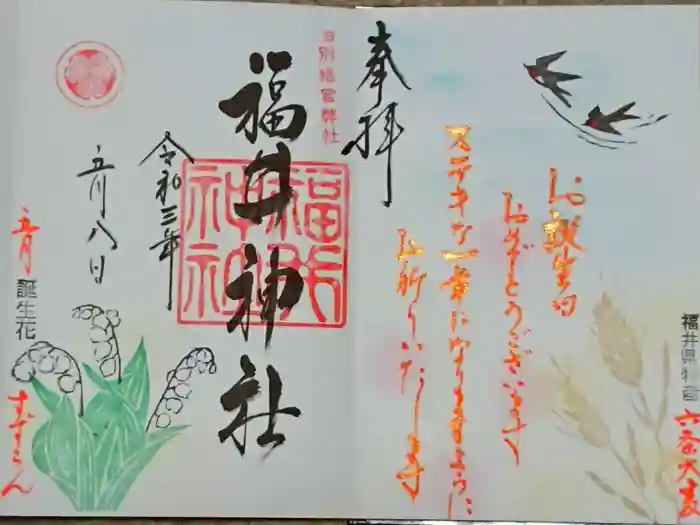 お誕生日
おめでとうございます
ステキな一年になりますように
お祈りいたします
福井県特産
六条大麦
奉拝
旧別格官幣社
福井神社
福井神社
令和三年
五月八日
五月
誕生花
すずらん